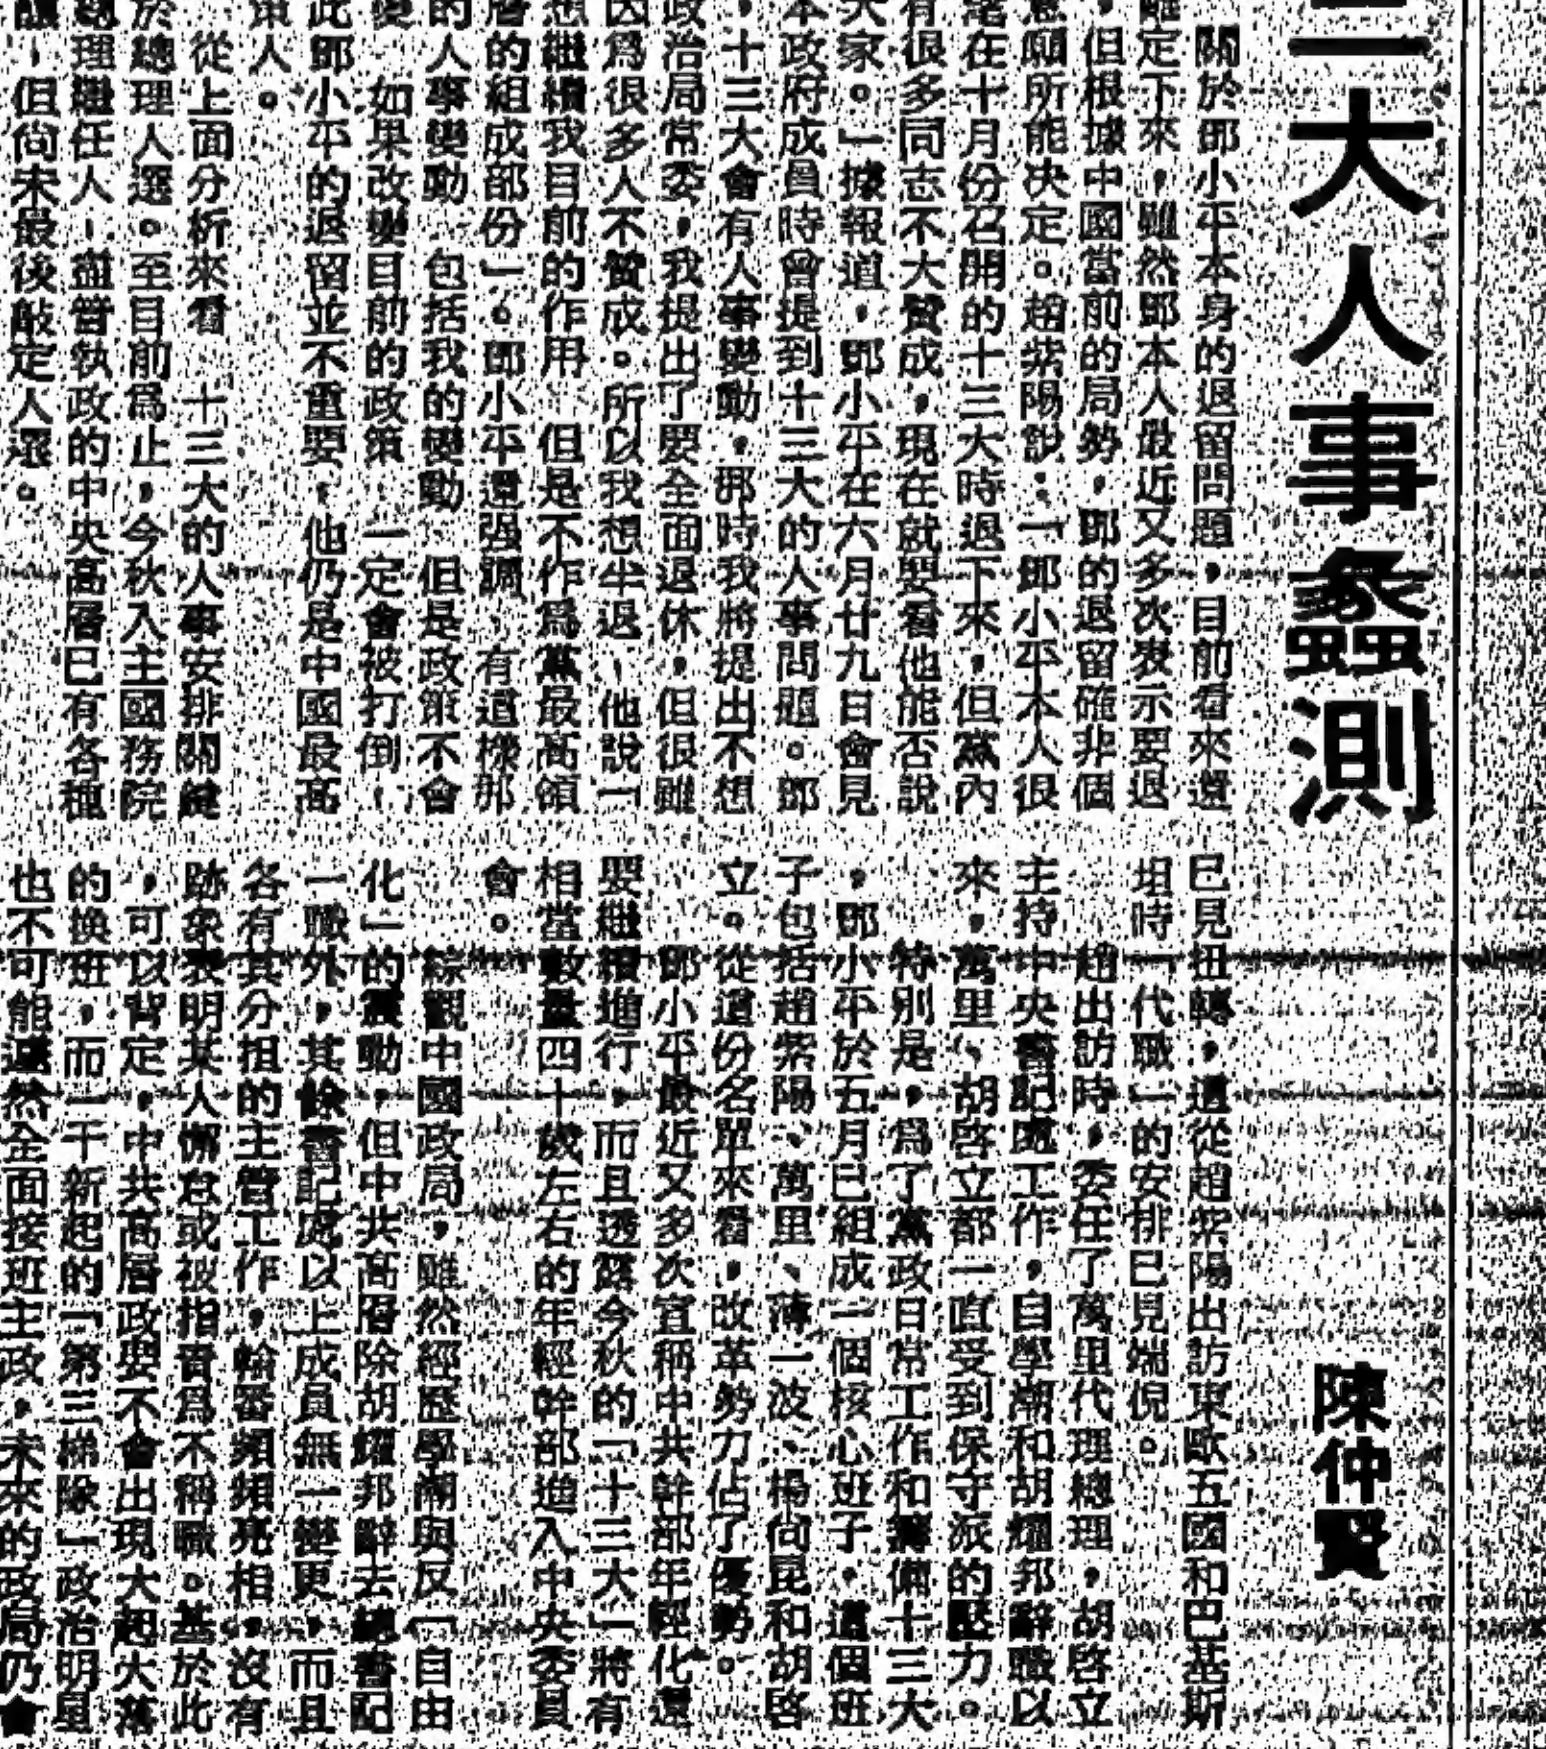 三大人事蠡測
陳仲賢
關於鄧小平本身的退留問題，目前看來還
定下來，雖然鄧本人最近又多次表示要退
，但根據中國當前的局勢，鄧的退留確非個
意願所能決定。趙紫陽說：「鄧小平本人很
在十月份召開的十三大時退下來，但黨內
有很多同志不大贊成，現在就要看他能否說
大家。」據報道，鄧小平在六月廿九日會見
本政府成員時曾提到十三大的人事問題。鄧
，十三大會有人事變動，那時我將提出不想
政治局常委，我提出了要全面退休，但很難
因爲很多人不贊成。所以我想半退，他說一
想繼續我目前的作用，但是不作爲黨最高領
層的組成部份」。鄧小平還强調，有這樣那
的人事變動，包括我的變動，但是政策不會
變，如果改變目前的政策，一定會被打倒，
此鄧小平的退留並不重要，他仍是中國最高
策人。
從上面分析來看，十三大的人事安排關鍵
於總理人選。至目前爲止，今秋入主國務院
總理繼任人，儘管執政的中央高層已有各種
，但尙未最後敲定人選。
已見扭轉，這從趙紫陽出訪東歐五國和巴基斯
坦時「代職」的安排已見端倪。
趙出訪時，委任了萬里代理總理，胡啓立
主持中央書記處工作，自學潮和胡耀邦辭職以
來，萬里、胡啓立都一直受到保守派的壓力。
特別是，爲了黨政日常工作和籌備十三大
，鄧小平於五月已組成一個核心班子，這個班
子包括趙紫陽、萬里、薄一波、楊尙昆和胡啓
立。從這份名單來看，改革勢力佔了優勢。
鄧小平最近又多次宣稱中共幹部年輕化還
要繼續進行，而且透露今秋的「十三大」將有
相當數量四十歲左右的年輕幹部進入中央委員
會。
綜觀中國政局，雖然經歷學潮與反「自由
化」的震動，但中共高層除胡耀邦辭去總書記
一職外，其餘書記處以上成員無一變更，而且
各有其分担的主管工作，輪番頻頻亮相，沒有
跡象表明某人懈怠或被指責爲不稱職。基於此
，可以肯定，中共高層政要不會出現大起大落
的換班，而一干新起的「第三梯隊」政治明星
也不可能遽然全面接班主政，未來的政局仍會